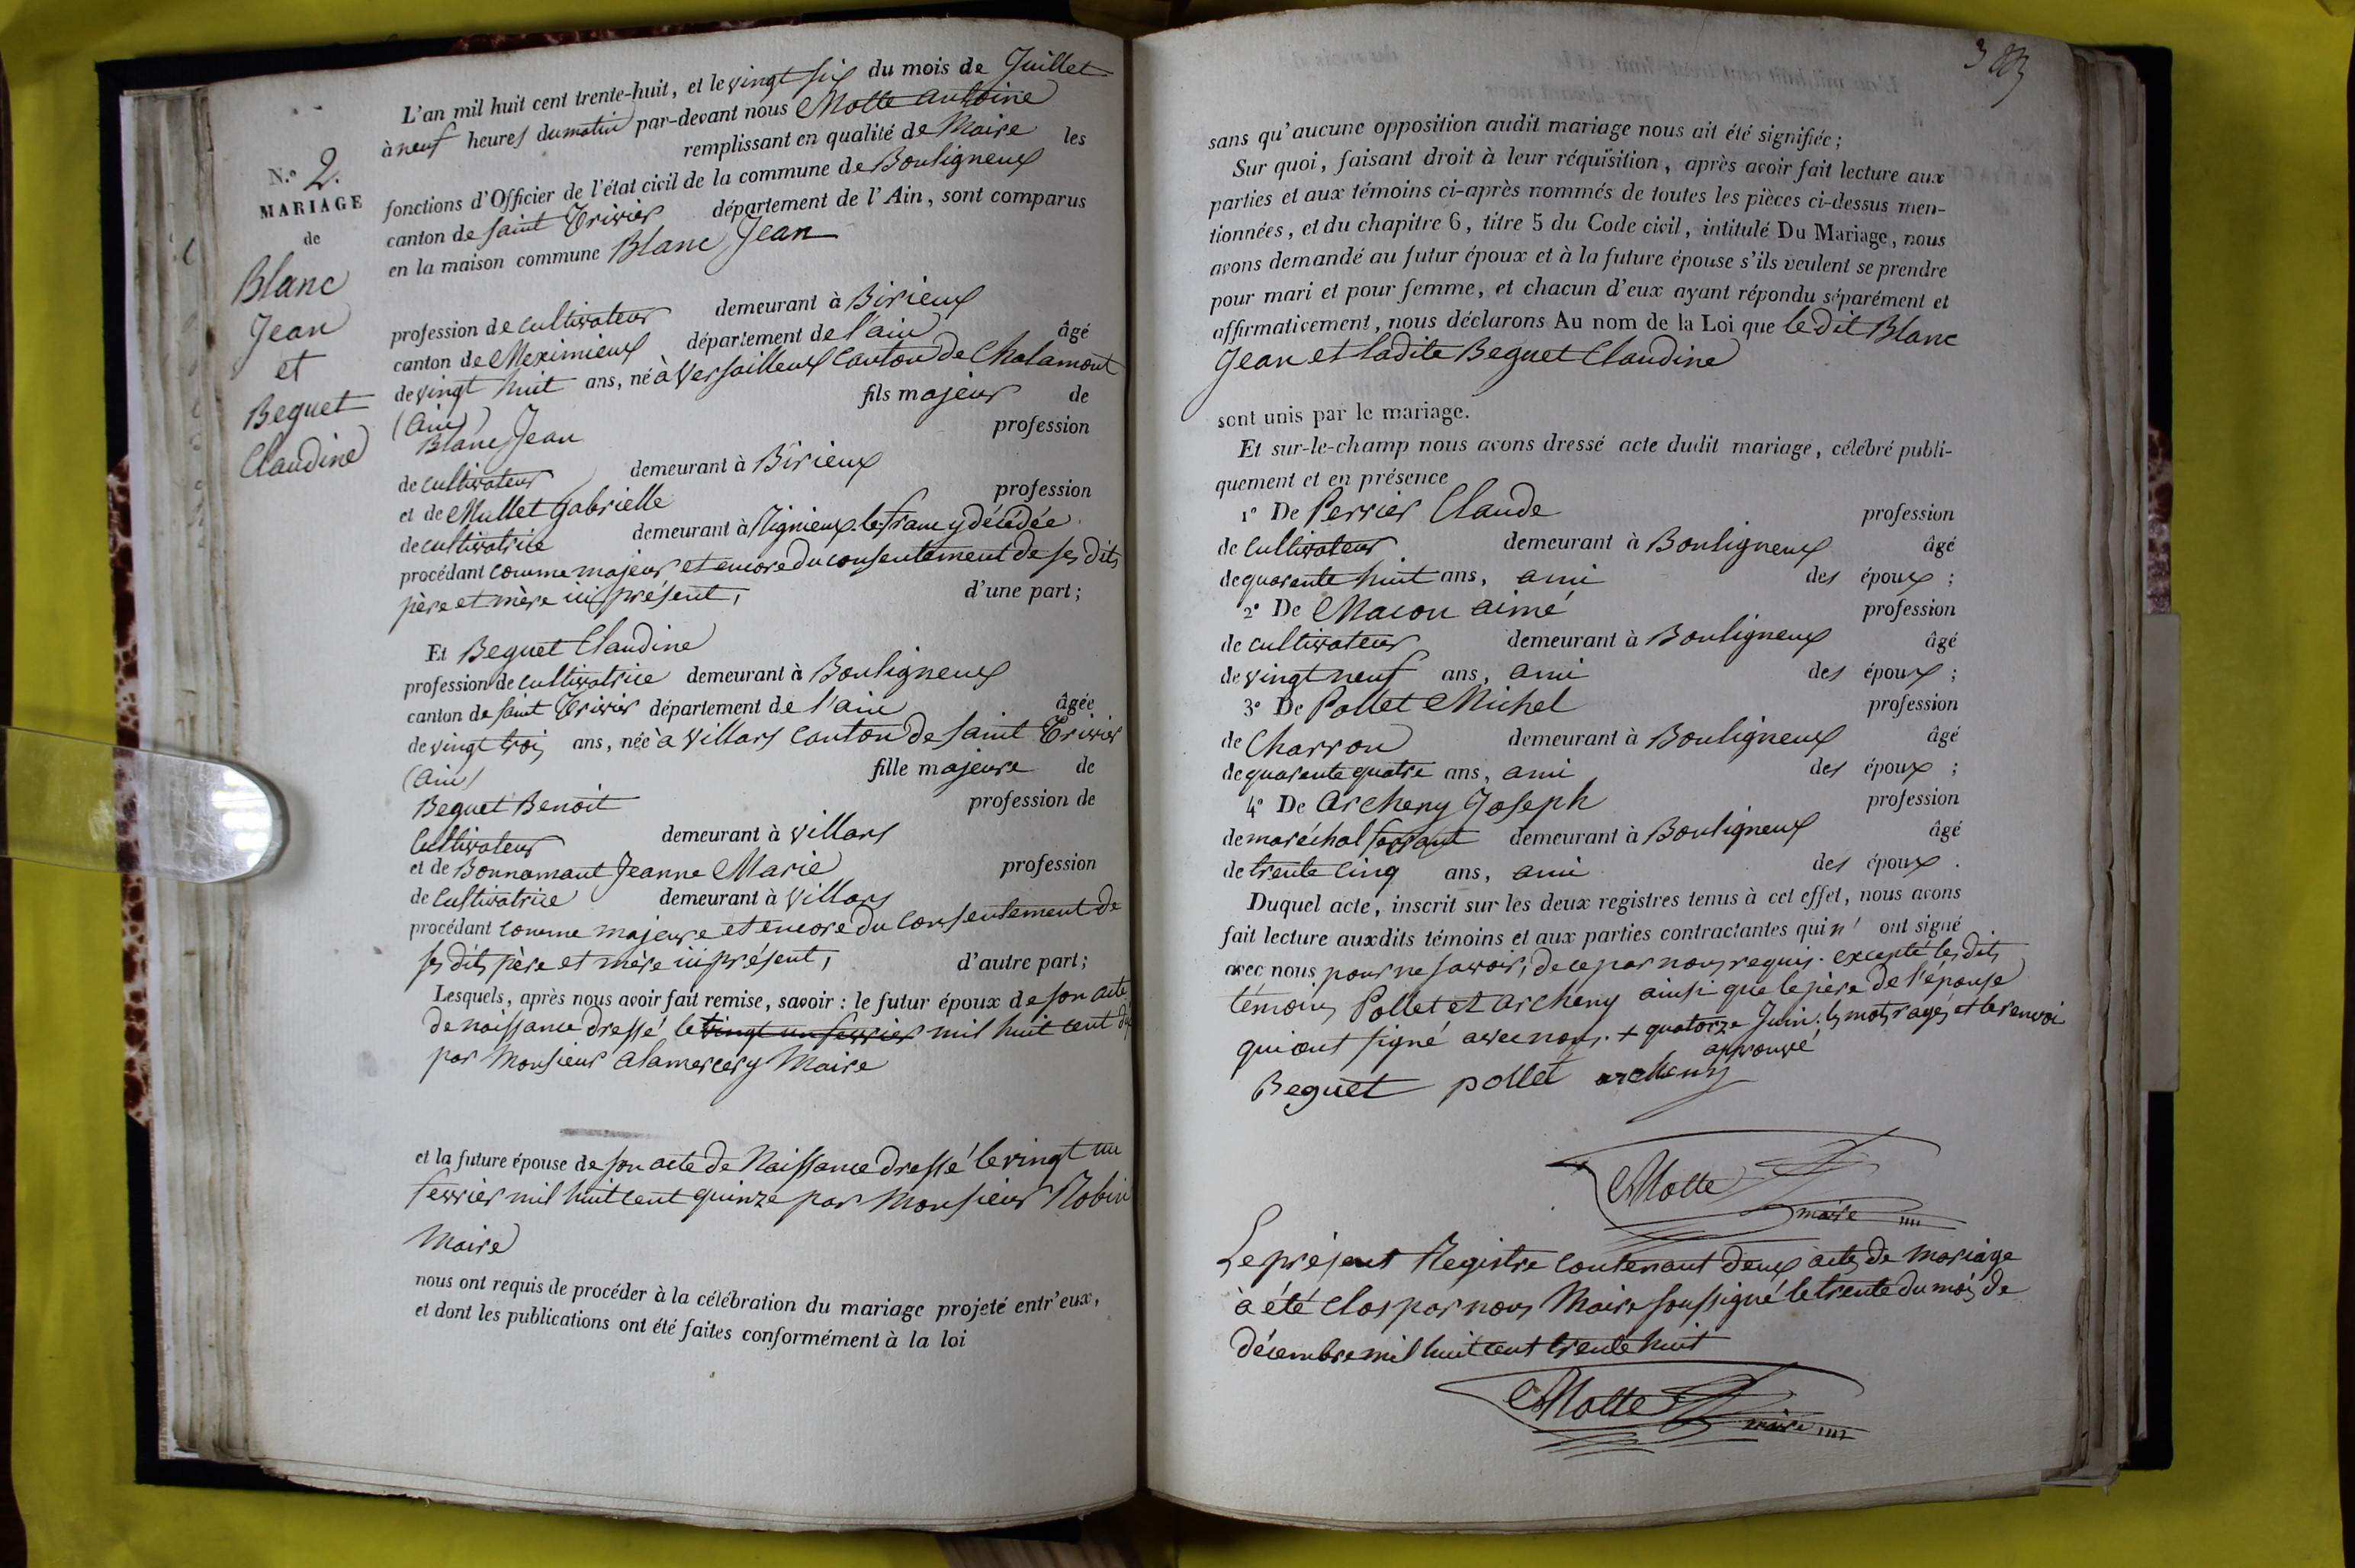 N.º 2.
MARIAGE
de
Blanc
Jean
et
Beguet
Claudine
L'an mil huit cent trente-huit, et le vingt six du mois de Juillet
à neuf heures du matin par-devant nous Motte antoine
remplissant en qualité de Maire les
fonctions d'Officier de l'état civil de la commune de Bouligneux
canton de saint Trivier département de l'Ain, sont comparus
en la maison commune Blanc Jean
profession de cultivateur demeurant à Birieux
canton de Meximieux département de l'ain âgé
de vingt huit ans, né à Versailleux Canton de Chalamont
(Ain) fils majeur de
Blanc Jean profession
de cultivateur demeurant à Birieux
et de Mullet Gabrielle profession
de cultivatrice demeurant à Rignieux-le-franc y décédée
procédant comme majeur et encore du consentement de ses dits
père et mère ici présent, d'une part;
Et Beguet Claudine
profession de cultivatrice demeurant à Bouligneux
canton de saint Trivier département de l'ain âgée
de vingt trois ans, née à Villars canton de saint Trivier
(Ain) fille majeure de
Beguet Benoit profession de
Cultivateur demeurant à villars
et de Bonnamant Jeanne Marie profession
de Cultivatrice demeurant à Villars
procédant comme majeure et encore du Consentement de
ses dits père et mère ici présent, d'autre part;
Lesquels, après nous avoir fait remise, savoir : le futur époux de son acte
de naissance dressé le vingt un fevrier mil huit cent dix
par Monsieur alamercery Maire
et la future épouse de son acte de Naissance dressé le vingt un
fevrier mil huit cent quinze par Monsieur Robin
Maire
nous ont requis de procéder à la célébration du mariage projeté entr'eux,
et dont les publications ont été faites conformément à la loi
sans qu'aucune opposition audit mariage nous ait été signifiée;
Sur quoi, faisant droit à leur réquisition, après avoir fait lecture aux
parties et aux témoins ci-après nommés de toutes les pièces ci-dessus men-
tionnées, et du chapitre 6, titre 5 du Code civil, intitulé Du Mariage, nous
avons demandé au futur époux et à la future épouse s'ils veulent se prendre
pour mari et pour femme, et chacun d'eux ayant répondu séparément et
affirmativement, nous déclarons Au nom de la Loi que le dit Blanc
Jean et ladite Beguet Claudine
sont unis par le mariage.
Et sur-le-champ nous avons dressé acte dudit mariage, célébré publi-
quement et en présence
1º De Perrier Claude profession
de Cultivateur demeurant à Bouligneux âgé
de quarente huit ans, ami des époux ;
2º De Macon aimé profession
de cultivateur demeurant à Bouligneux âgé
de vingt neuf ans, ami des époux ;
3º De Pollet Michel profession
de Charron demeurant à Bouligneux âgé
de quarente quatre ans, ami des époux ;
4º De Archeny Joseph profession
de maréchal ferrant demeurant à Bouligneux âgé
de trente cinq ans, ami des époux .
Duquel acte, inscrit sur les deux registres tenus à cet effet, nous avons
fait lecture auxdits témoins et aux parties contractantes qui n' ont signé
avec nous pour ne savoir, de ce par nous requis. excepté les dits
témoins Pollet et archeny ainsi que le père de l'épouse
qui ont signé avec nous. + quatorze Juin. les mots rayés et le renvoi
approuvé
Beguet pollet archeny
Motte
maire
Le présent Registre contenant deux actes de mariage
à été clos par nous Maire soussigné le trente du mois de
décembre mil huit cent trente huit
Motte
maire